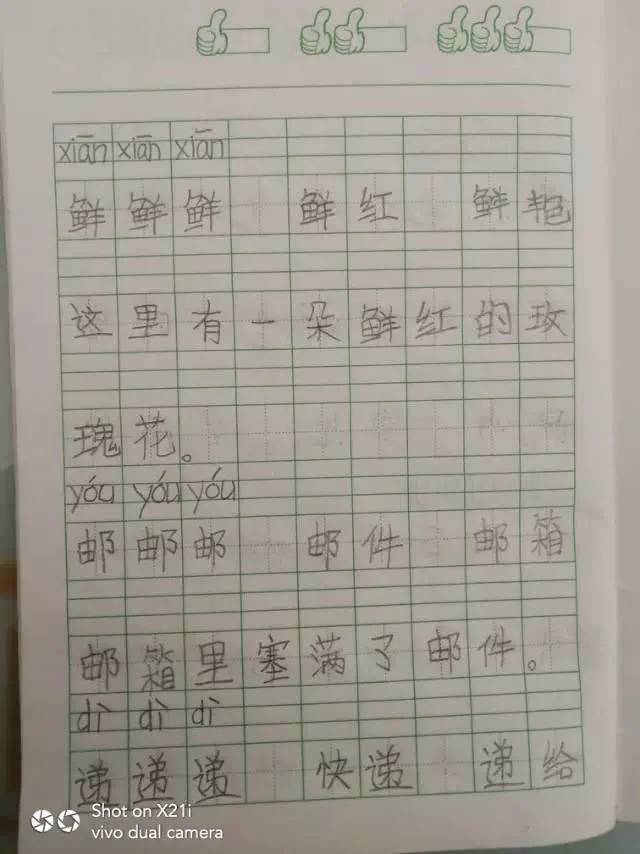 xiān xiān xiān
鲜 鲜 鲜 鲜 红 鲜 艳
这 里 有 一 朵 鲜 红 的 玫
瑰 花。
yóu yóu yóu
邮 邮 邮 邮 件 邮 箱
邮 箱 里 塞 满 了 邮 件。
dì dì dì
递 递 递 快 递 递 给
Shot on X21i
vivo dual camera